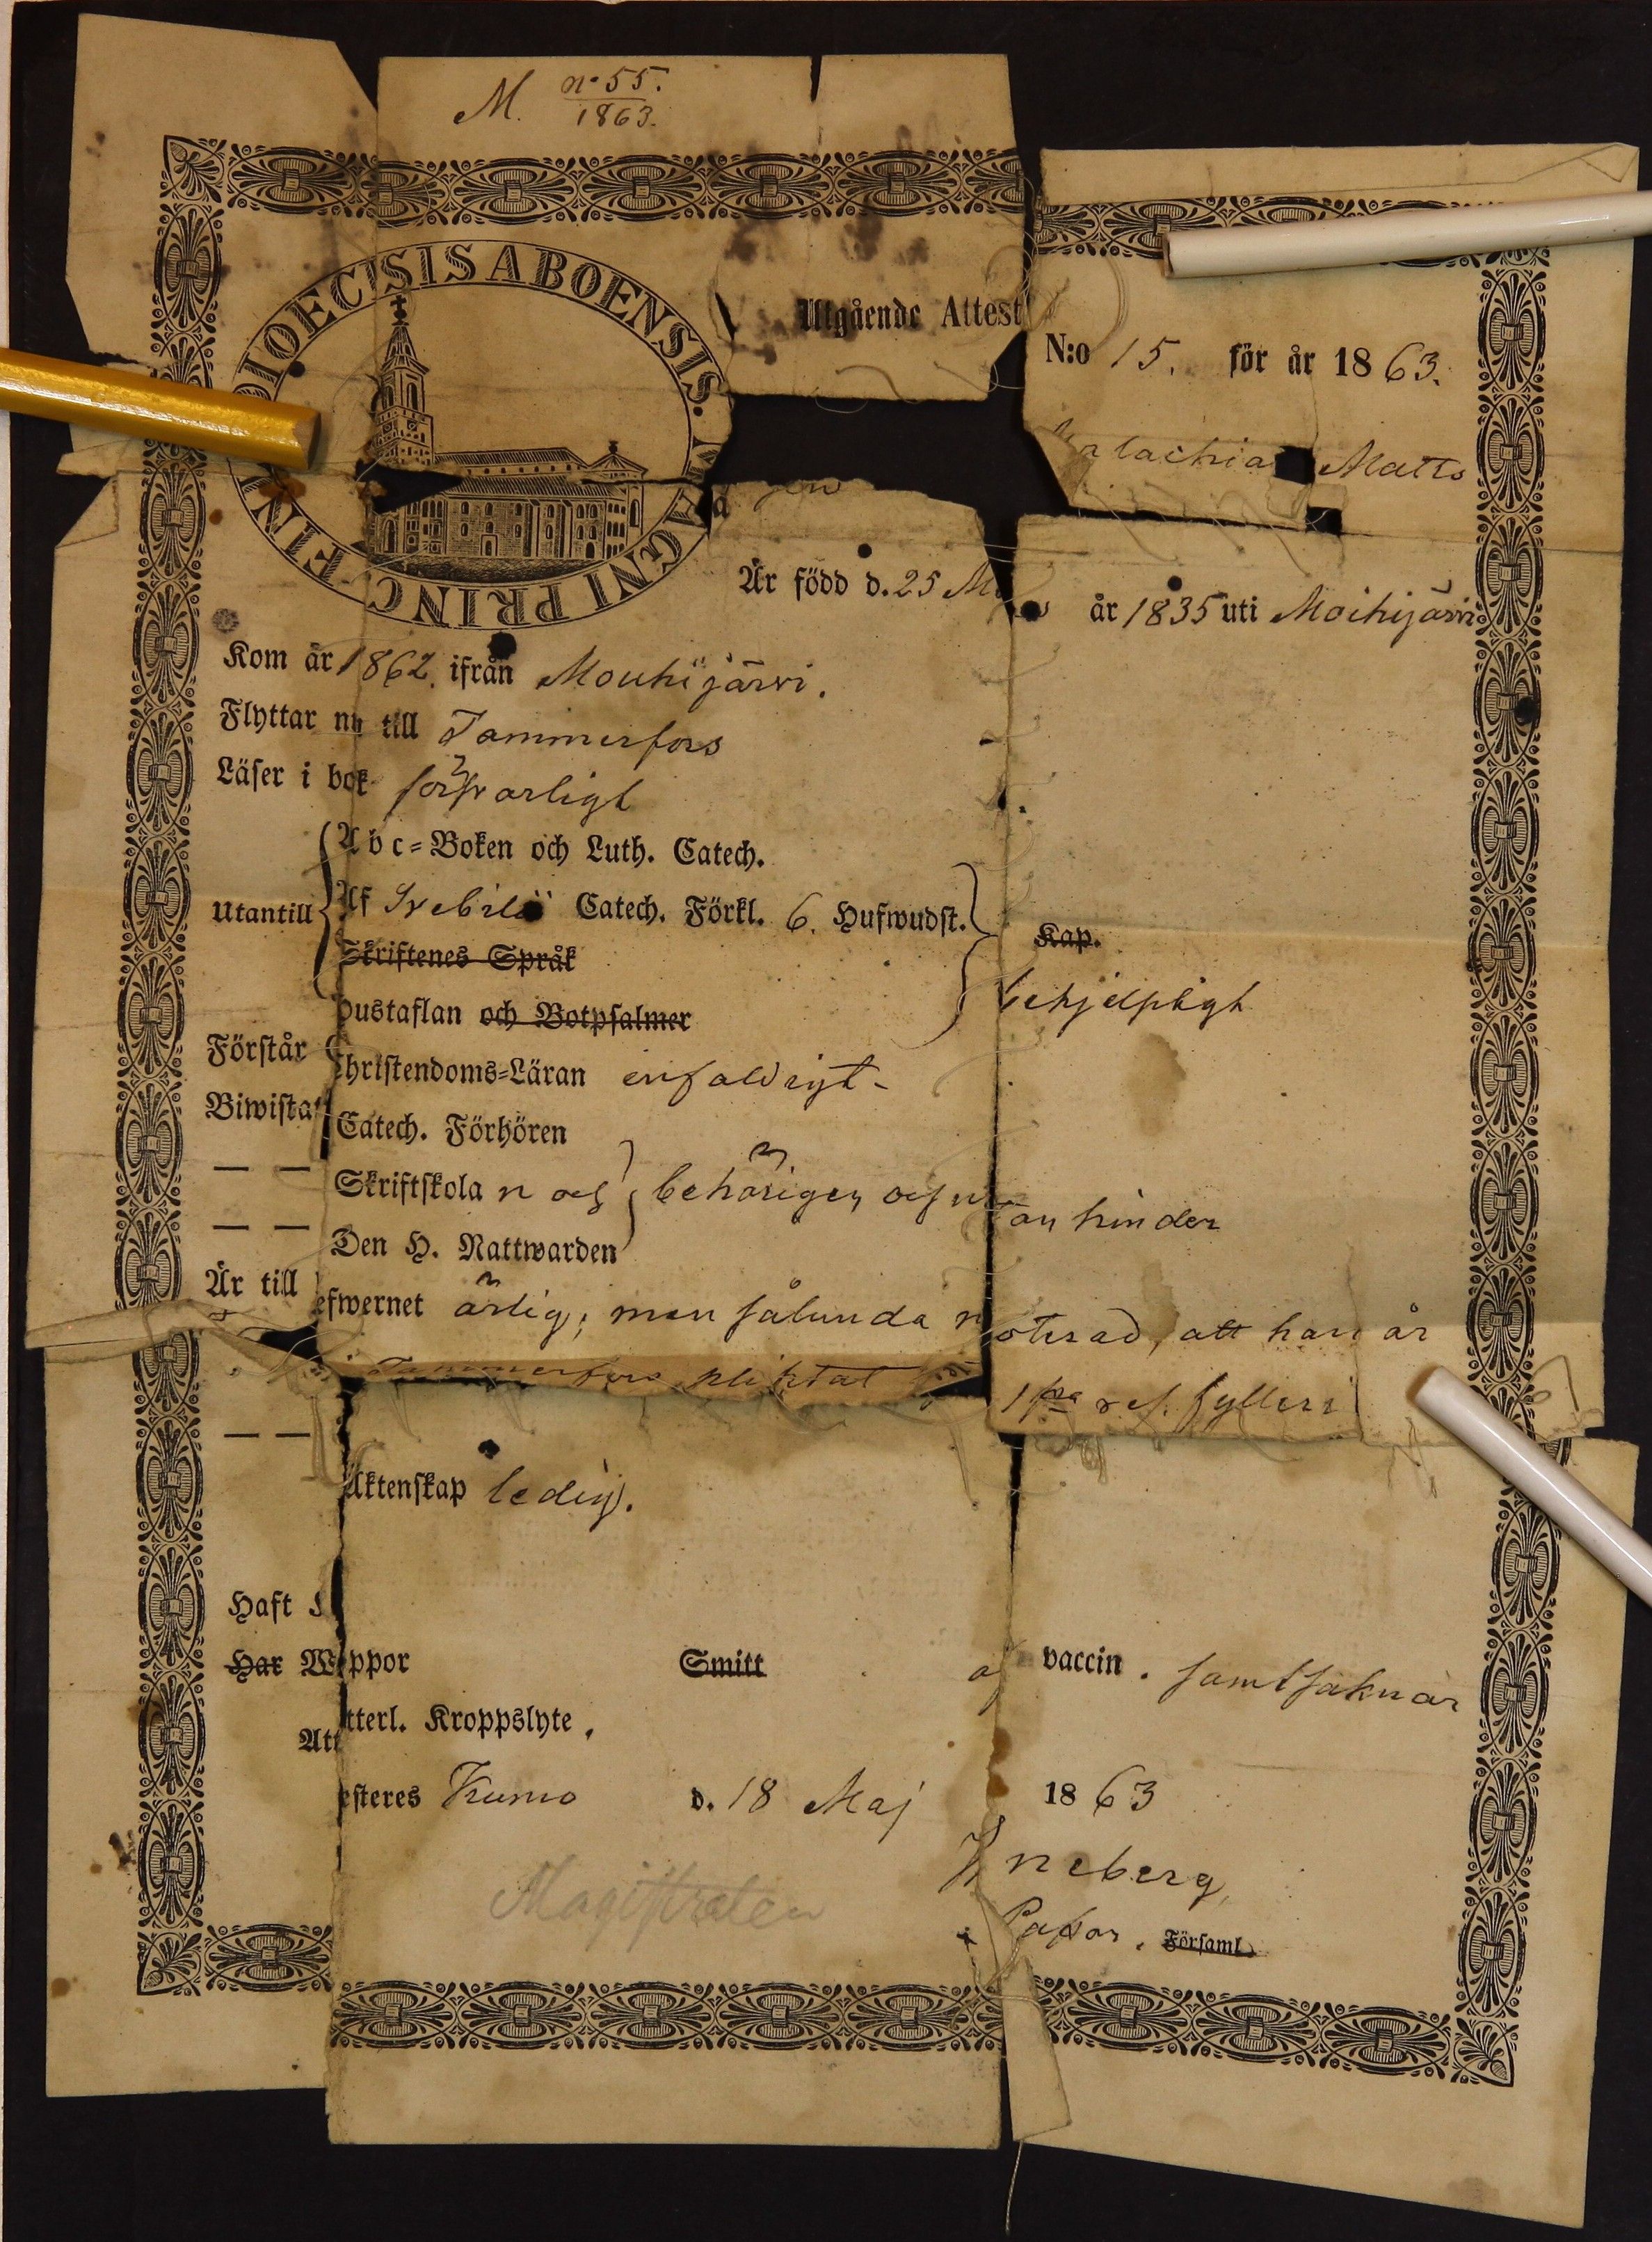 M. no 55.
1863.
DIOECESIS ABOENSIS. MAGNI PRINC. FIN
Utgående Attest
N:o 15. för år 1863.
Malachias Matts
Är född d. 25 M s år 1835 uti Moihijärvi
Kom år 1862. ifrån Mouhijärvi.
Flyttar nu till Tammerfors
Läser i bok försvarligt
Abc-Boken och Luth. Catech.
Utantill Af Svebilii Catech. Förkl. 6. Hufwudst. Kap.
Skriftenes Språk
Hustaflan och Botpsalmer behjelpligt
Förstår Christendoms-Läran enfaldigt-
Biwistat Catech. Förhören
— — Skriftskolan och behörigen och utan hinder
— — Den H. Nattwarden
Är till Lefwernet ärlig; men sålunda noterad, att han är
Tammerfors pliktat för 1sta res. fylleri
— — Äktenskap ledig.
Haft
Har Wappor Smitt af vaccin. samt saknar
ytterl. Kroppslyte.
Attesteres Kumo d. 18 Maj 1863
neberg
Magistraten
Pastor. Församl.